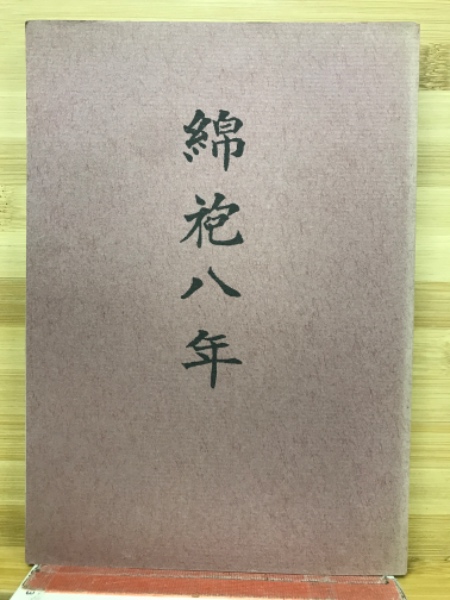 綿袍八年